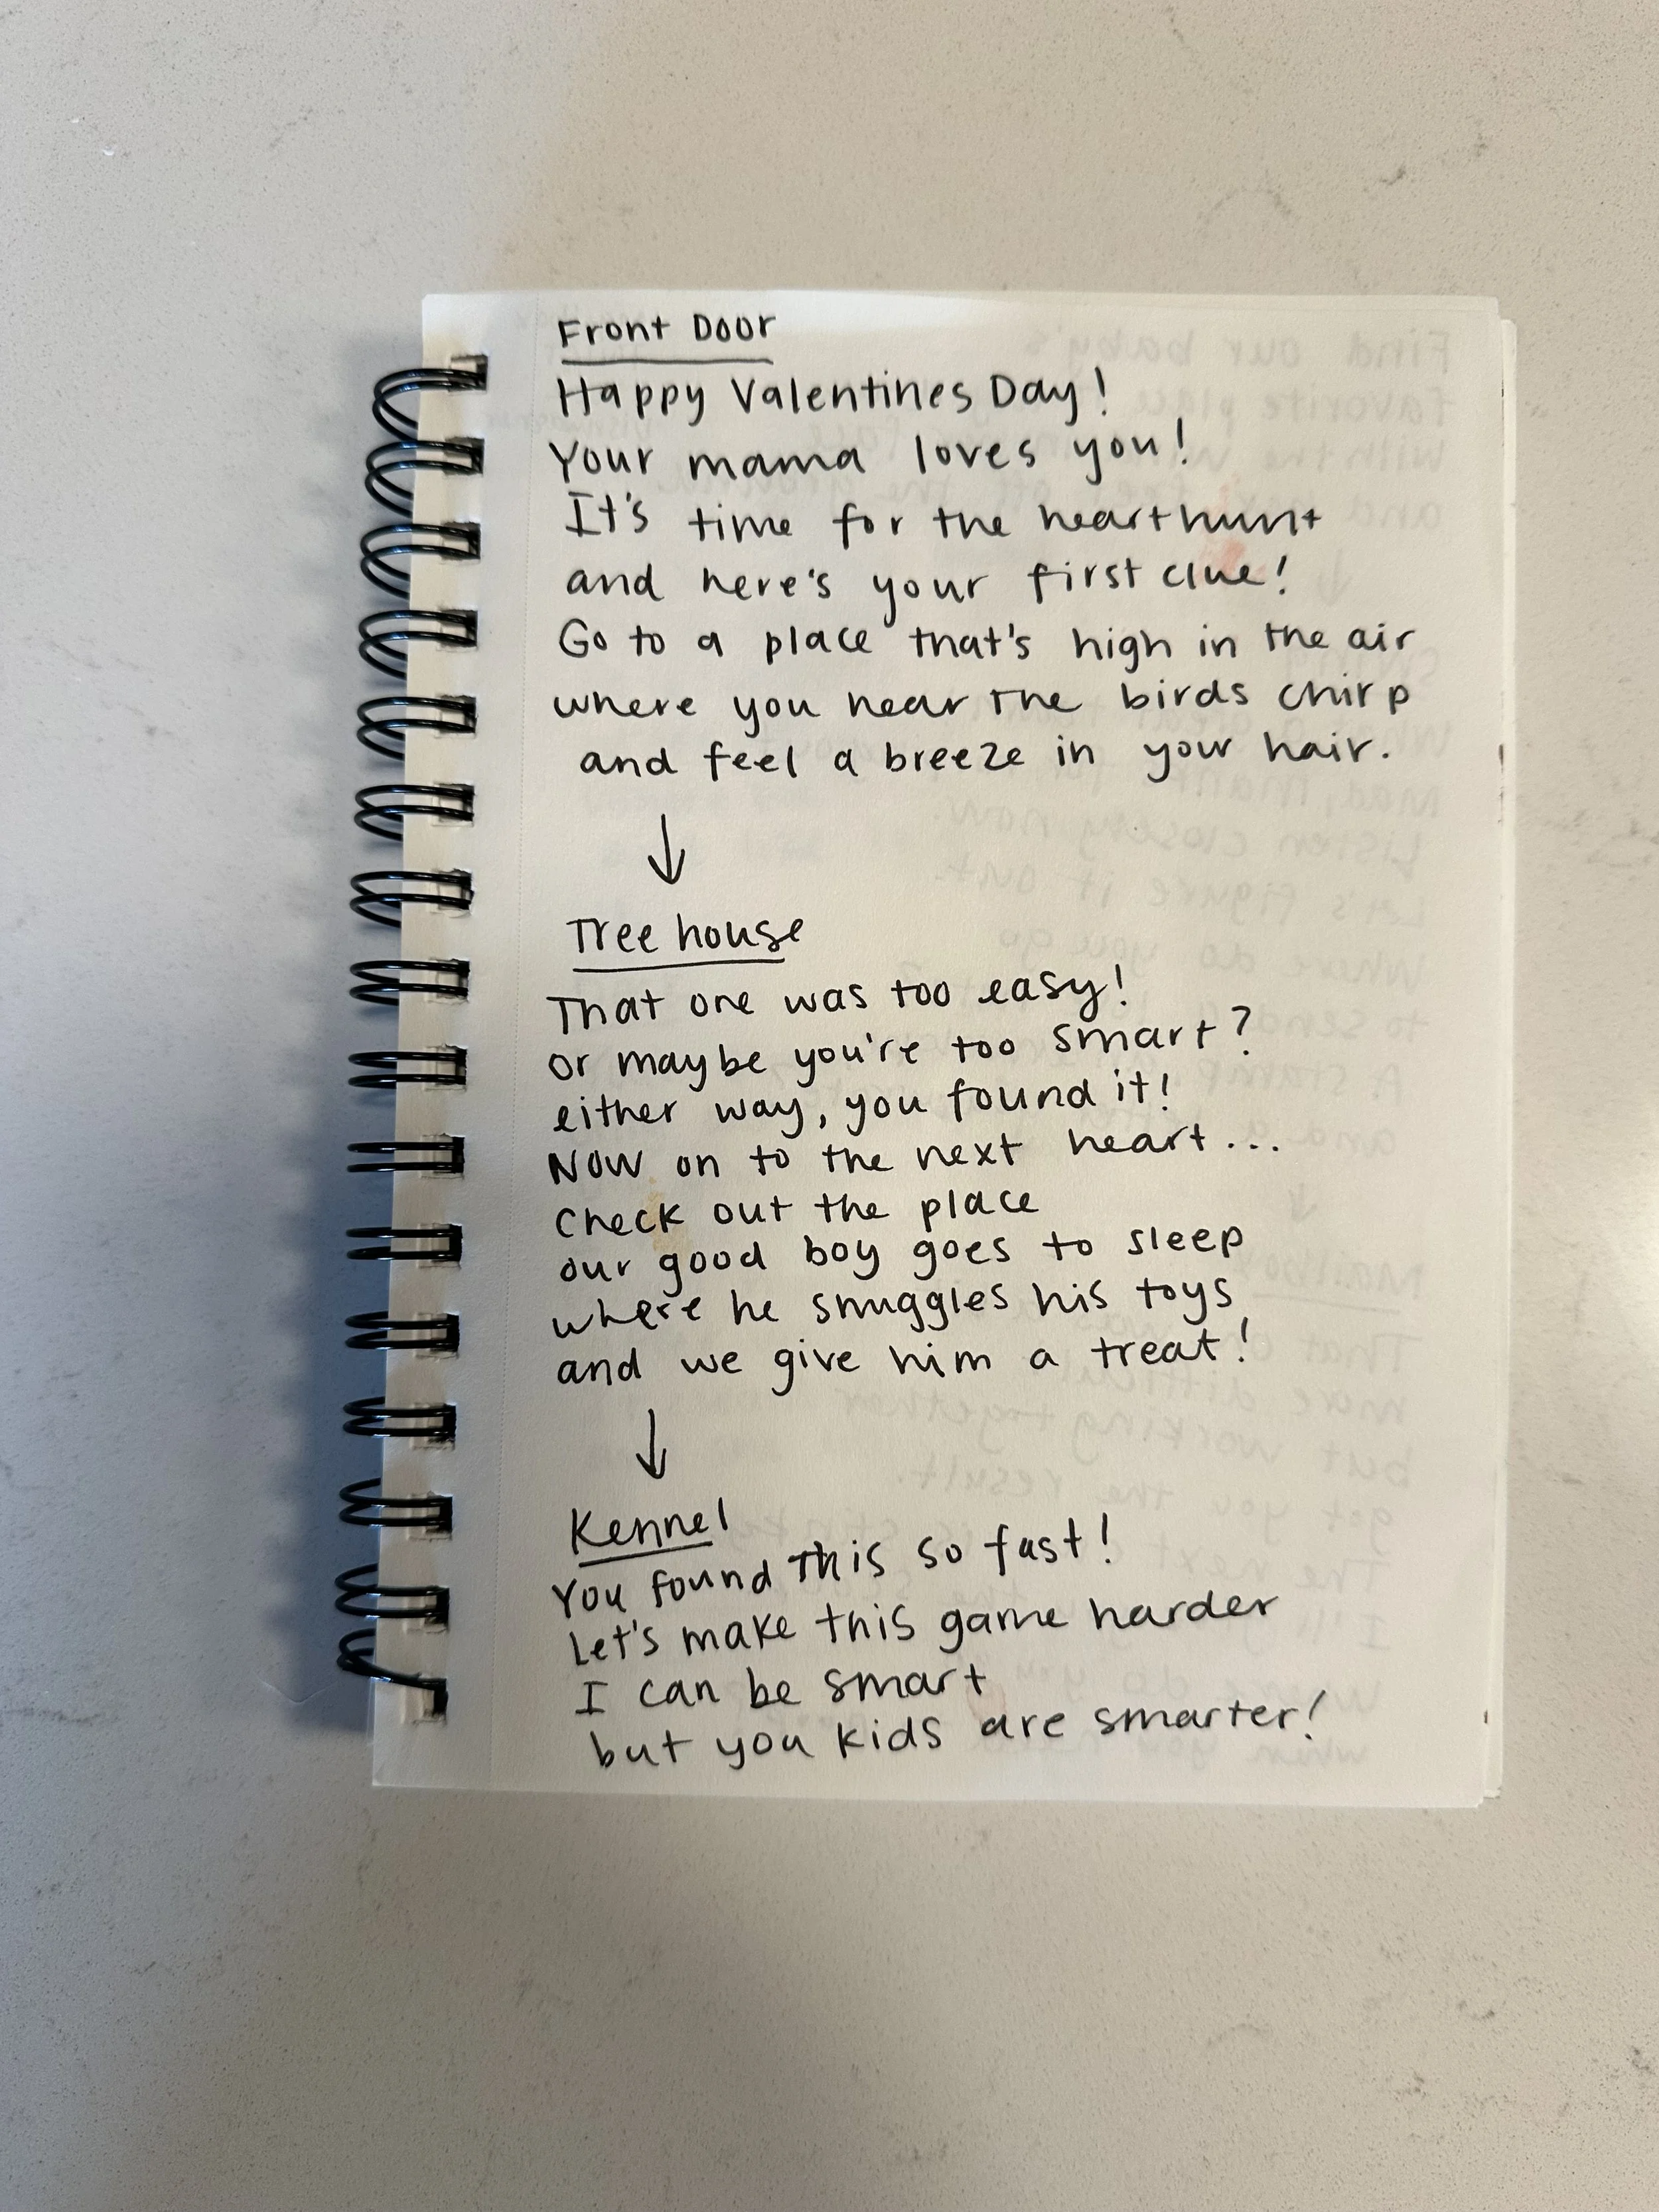 Front Door
Happy Valentines Day!
Your mama loves you!
It's time for the heart hunt
and here's your first clue!
Go to a place that's high in the air
where you hear the birds chirp
and feel a breeze in your hair.
↓
Tree house
That one was too easy!
or maybe you're too smart?
either way, you found it!
Now on to the next heart...
Check out the place
our good boy goes to sleep
where he snuggles his toys
and we give him a treat!
↓
Kennel
You found this so fast!
Let's make this game harder
I can be smart
but you kids are smarter!